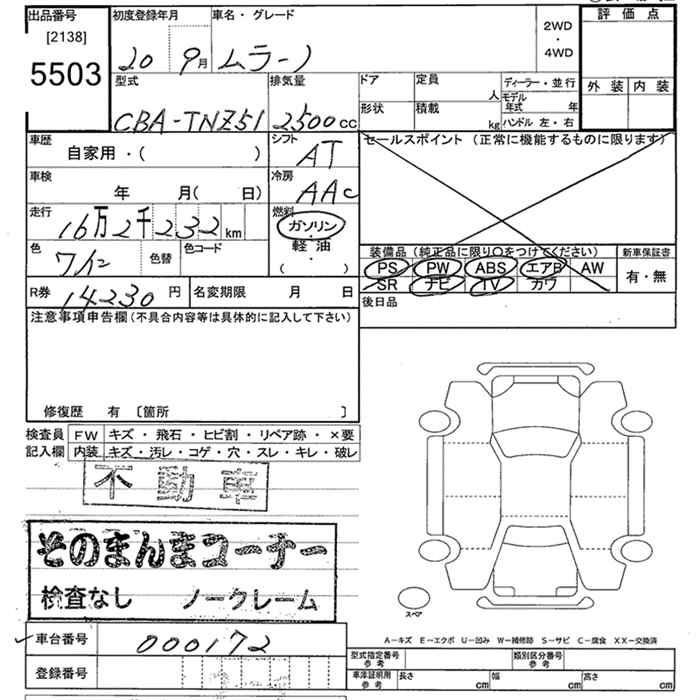 出品番号 初度登録年月 車名・グレード 評価点
[2138] 2WD
5503 20 9月 ムラーノ ・
4WD
型式 排気量 ドア 定員 ディーラー・並行 外装 内装
人 モデル年式 年
CBA-TNZ51 2500cc 形状 積載 kg ハンドル 左・右
車歴 シフト セールスポイント (正常に機能するものに限ります)
自家用・( ) AT
車検 冷房
年 月( 日) AAC
走行 燃料
16万2千232km ガソリン
・
色 色替 色コード 軽油 装備品 (純正品に限り○をつけてください) 新車保証書
ワイン ( ) PS PW ABS エアB AW 有・無
SR ナビ TV カワ
R券 14230円 名変期限 月 日 後日品
注意事項申告欄 (不具合内容等は具体的に記入して下さい)
修復歴 有 〔箇所 〕
検査員 FW キズ・飛石・ヒビ割・リペア跡・×要
記入欄 内装 キズ・汚レ・コゲ・穴・スレ・キレ・破レ
不動車
そのまんまコーナー
検査なし ノークレーム
スペア
車台番号 000172
A-キズ E-エクボ U-凹み W-補修跡 S-サビ C-腐食 XX-交換済
型式指定番号 参考 類別区分番号 参考
登録番号 車庫証明用 参考 長さ cm 幅 cm 高さ cm